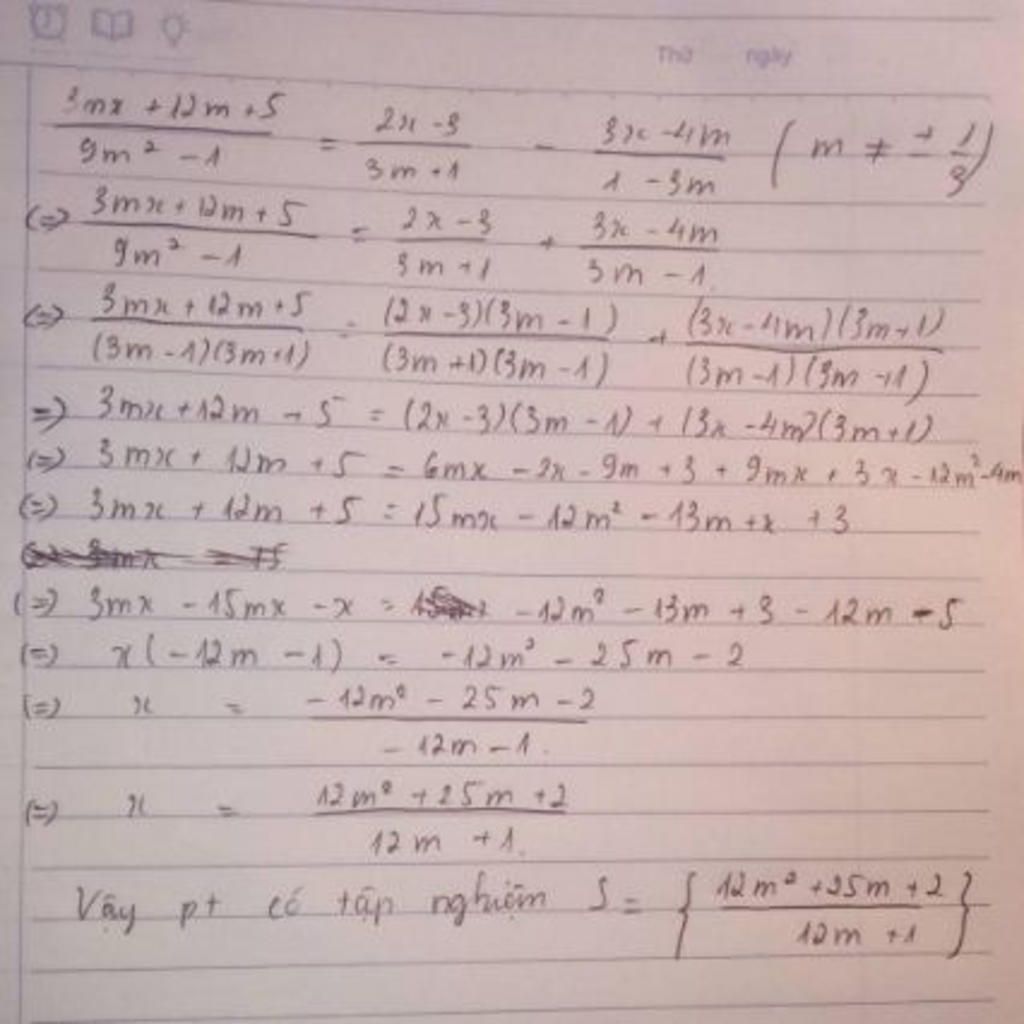 Thứ ngày
(3mx + 12m + 5)/(9m² - 1) = (2x - 3)/(3m + 1) - (3x - 4m)/(1 - 3m) (m ≠ ± 1/3)
(=) (3mx + 12m + 5)/(9m² - 1) = (2x - 3)/(3m + 1) + (3x - 4m)/(3m - 1)
(=) (3mx + 12m + 5)/((3m - 1)(3m + 1)) = ((2x - 3)(3m - 1))/((3m + 1)(3m - 1)) + ((3x - 4m)(3m + 1))/((3m - 1)(3m + 1))
=) 3mx + 12m + 5 = (2x - 3)(3m - 1) + (3x - 4m)(3m + 1)
(=) 3mx + 12m + 5 = 6mx - 2x - 9m + 3 + 9mx + 3x - 12m² - 4m
(=) 3mx + 12m + 5 = 15mx - 12m² - 13m + x + 3
(=) 3mx - 15mx - x = - 12m² - 13m + 3 - 12m - 5
(=) x(-12m - 1) = -12m² - 25m - 2
(=) x = (-12m² - 25m - 2)/(-12m - 1)
(=) x = (12m² + 25m + 2)/(12m + 1)
Vậy pt có tập nghiệm S = {(12m² + 25m + 2)/(12m + 1)}